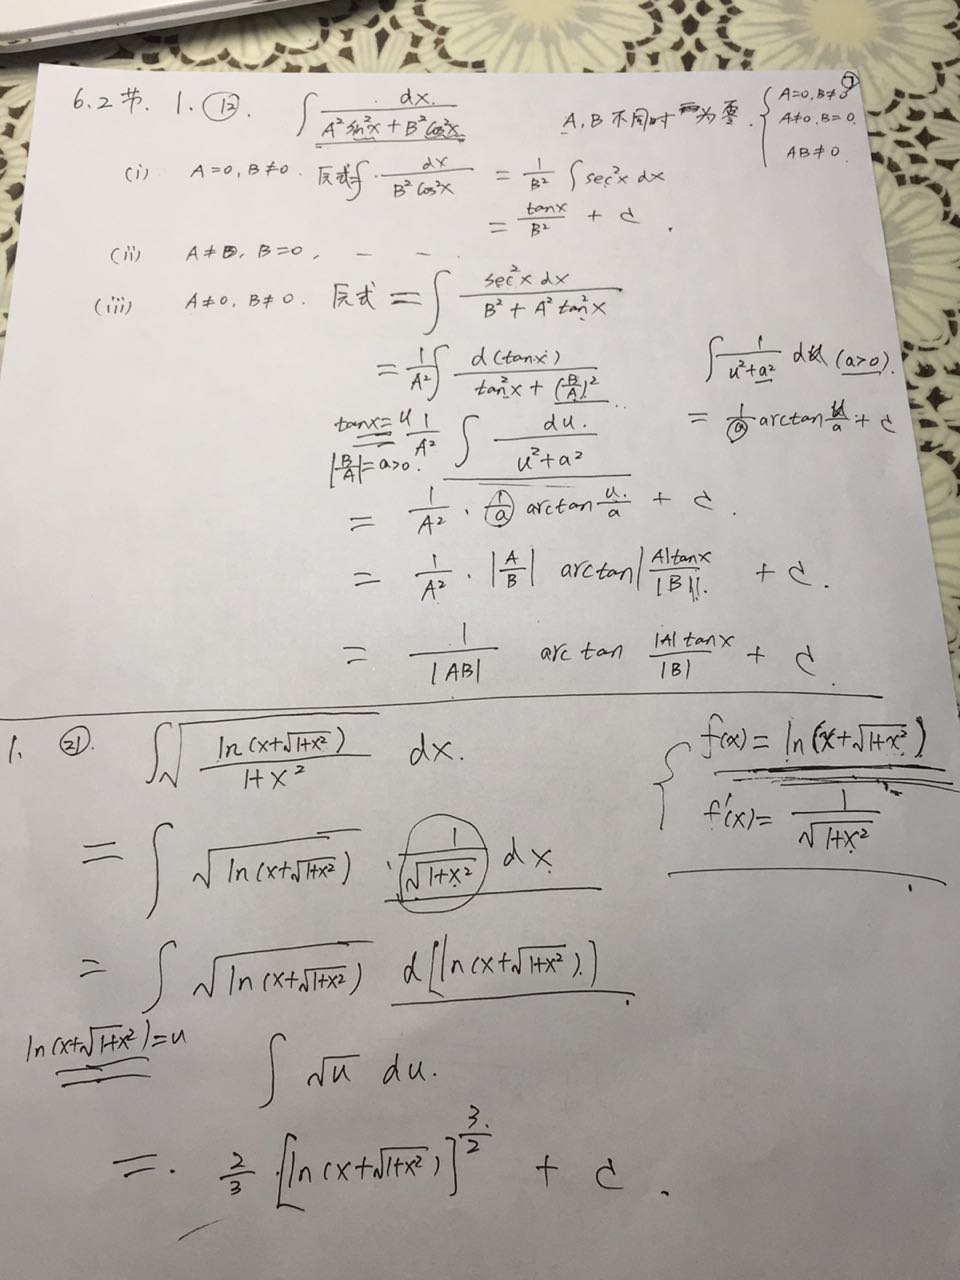 6.2节. 1. ⑫. ∫ dx / (A²sin²x + B²cos²x) A,B 不同时为零. { A=0, B≠0
A≠0, B=0.
AB≠0.
(i) A=0, B≠0. 原式 ∫ dx / (B²cos²x) = 1/B² ∫ sec²x dx
= tanx / B² + C.
(ii) A≠0, B=0, – –
(iii) A≠0, B≠0. 原式 = ∫ sec²x dx / (B² + A²tan²x)
= 1/A² ∫ d(tanx) / (tan²x + (B/A)²) ∫ 1/(u²+a²) du (a>0).
= 1/a arctan u/a + C
tanx=u |B/A|=a>0. 1/A² ∫ du. / (u²+a²)
= 1/A² · 1/a arctan u/a + C.
= 1/A² · |A/B| arctan |A|tanx / |B| + C.
= 1/|AB| arctan |A|tanx / |B| + C.
1. ㉑. ∫ √( ln(x+√(1+x²)) / (1+x²) ) dx. { f(x) = ln(x+√(1+x²))
f'(x) = 1/√(1+x²)
= ∫ √(ln(x+√(1+x²))) · 1/√(1+x²) dx
= ∫ √(ln(x+√(1+x²))) d[ln(x+√(1+x²))]
ln(x+√(1+x²))=u ∫ √u du.
=. 2/3 · [ln(x+√(1+x²))]^(3/2) + C.